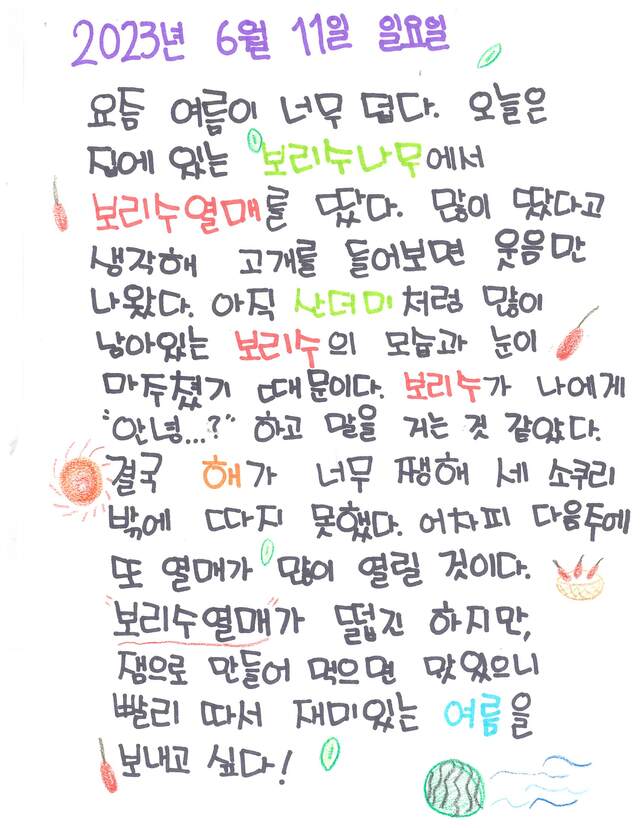 2023년 6월 11일 일요일
요듬 여름이 너무 덥다. 오늘은
집에 있는 보리수나무에서
보리수열매를 땄다. 많이 땄다고
생각해 고개를 들어보면 웃음만
나왔다. 아직 산더미처럼 많이
남아있는 보리수의 모습과 눈이
마주쳤기 때문이다. 보리수가 나에게
"안녕...?" 하고 말을 거는 것 같았다.
결국 해가 너무 쨍해 세 소쿠리
밖에 따지 못했다. 어차피 다음주에
또 열매가 많이 열릴 것이다.
"보리수열매"가 떫긴 하지만,
잼으로 만들어 먹으면 맛있으니
빨리 따서 재미있는 여름을
보내고 싶다!